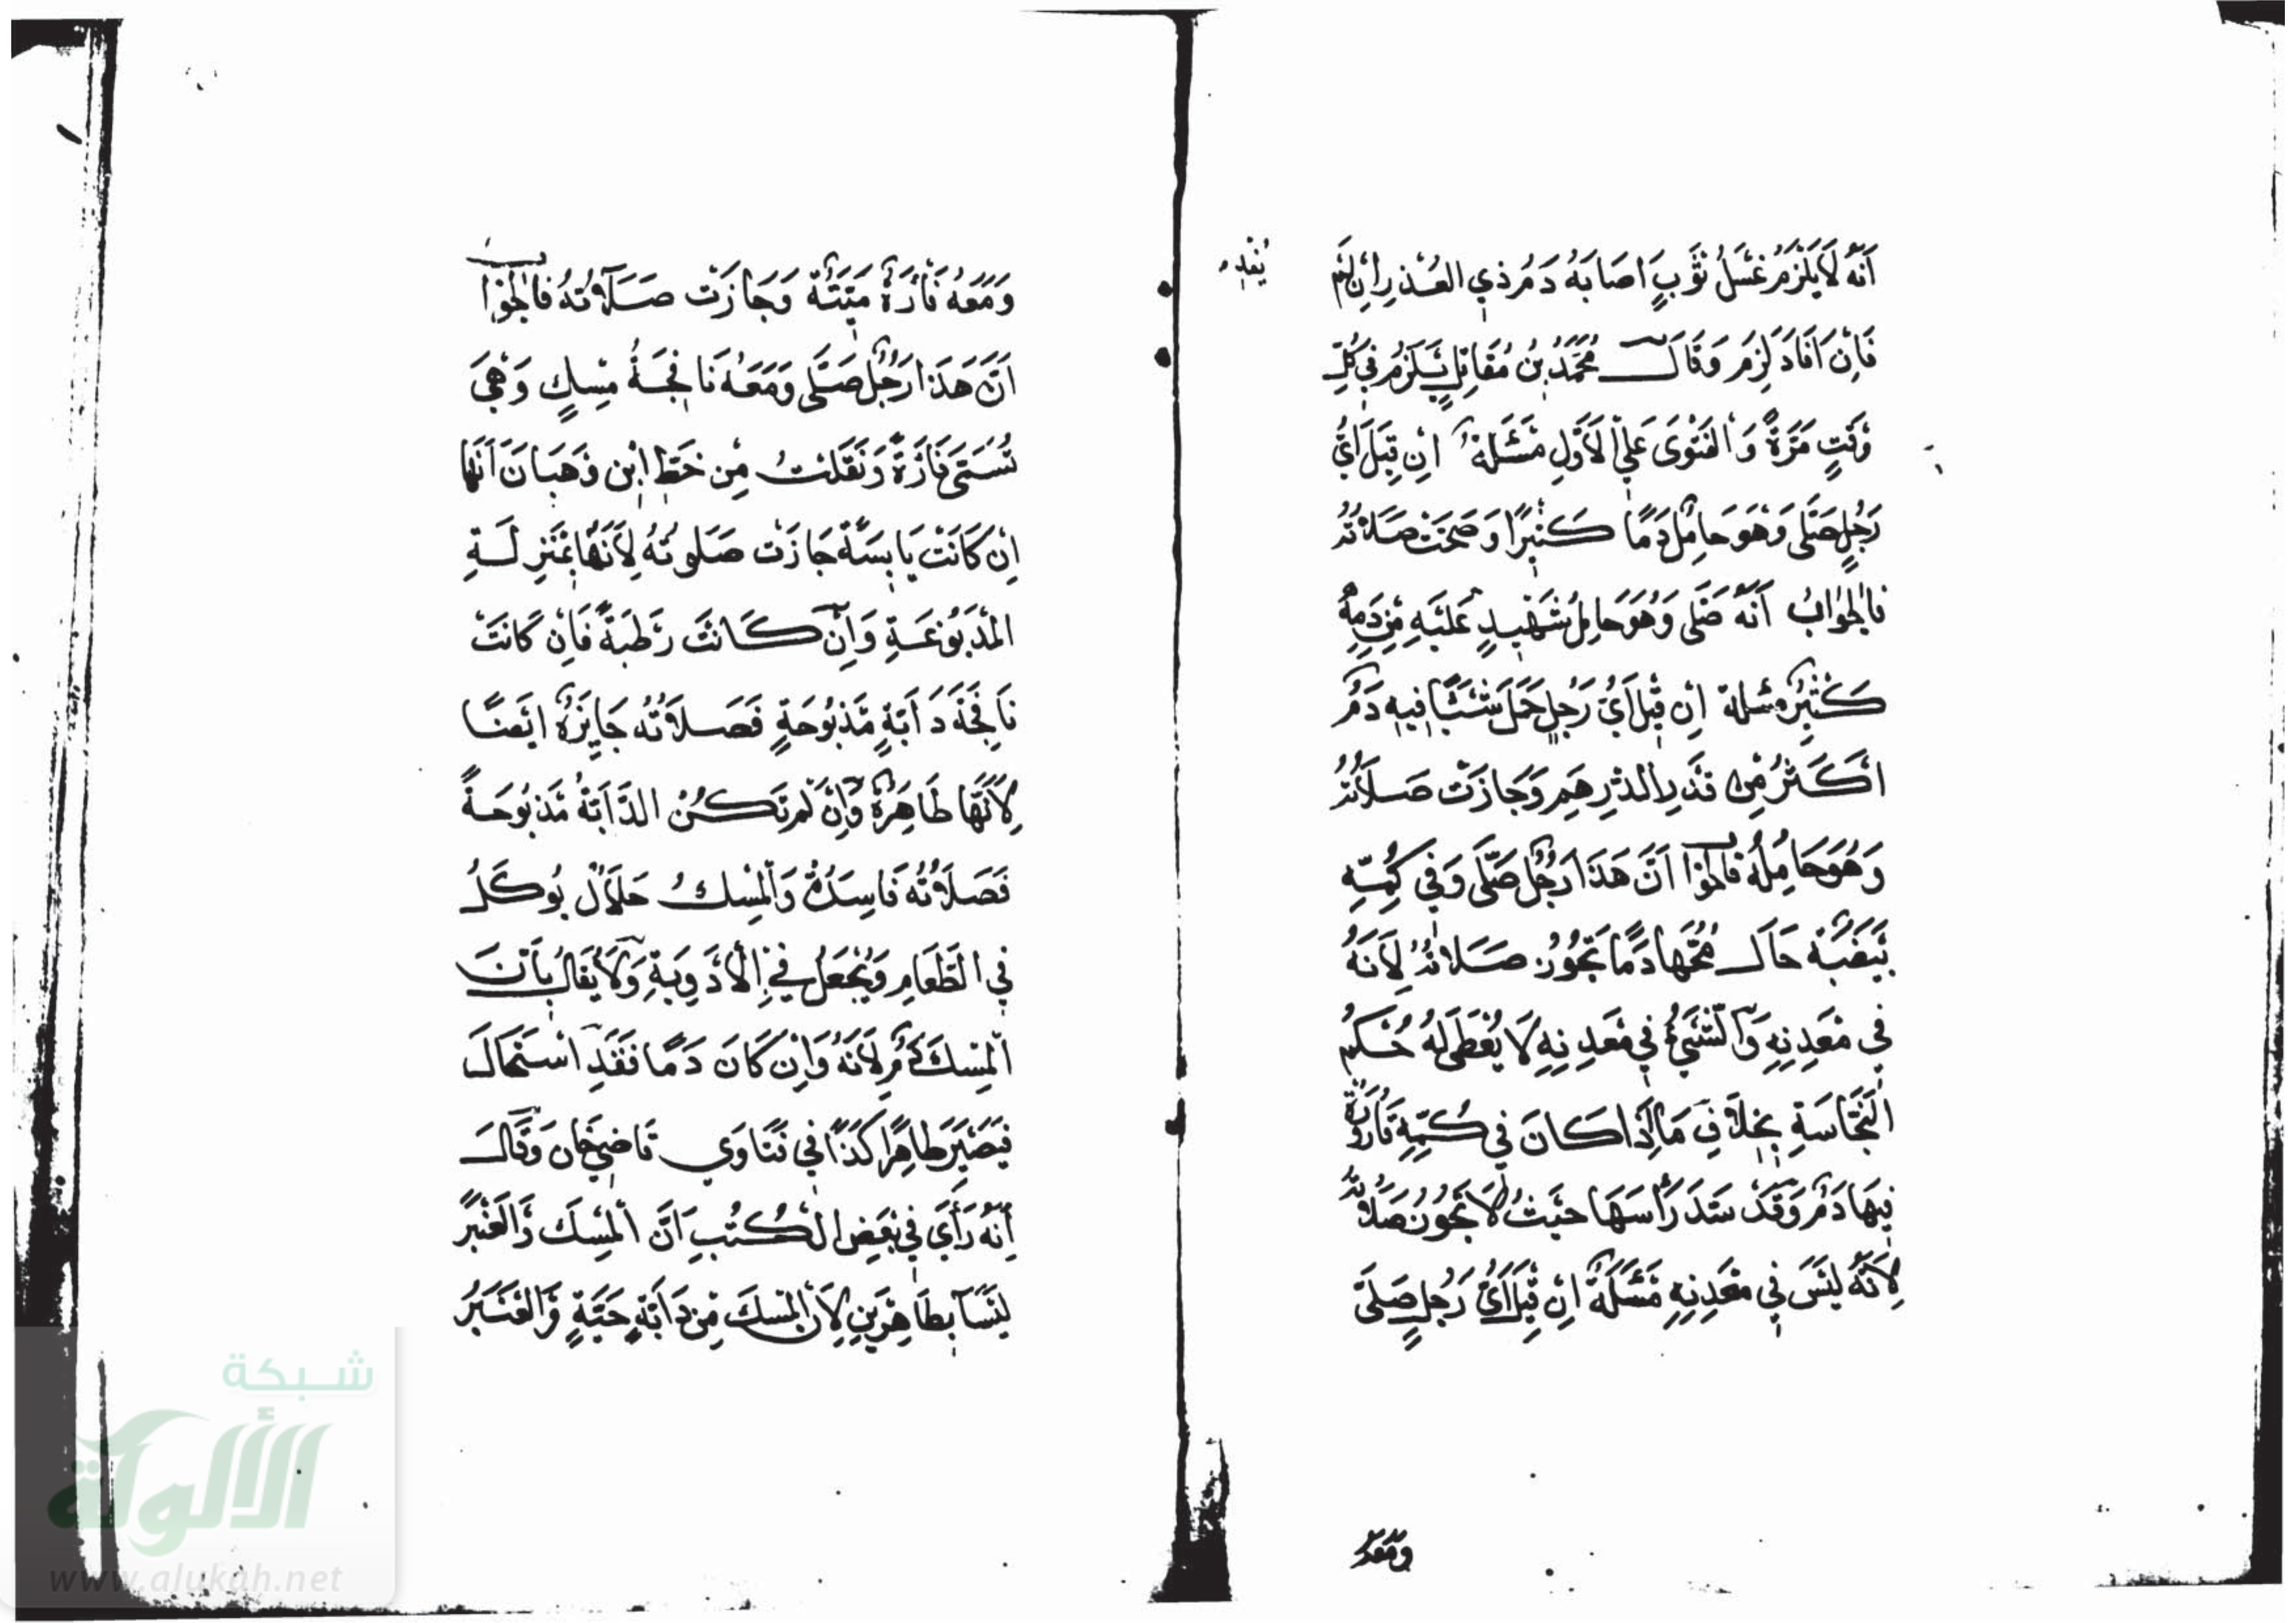 اَنَّهُ لَا يَلْزَمُ غَسْلُ ثَوْبٍ اَصَابَهُ دَمُ ذِي العُذْرِ اِنْ لَمْ
يُفِدْ
فَاِنْ اَفَادَ لَزِمَ وَقَالَ مُحَمَّدُ بْنُ مُقَاتِلٍ يَلْزَمُ فِي كُلِّ
وَقْتٍ مَرَّةً وَالْفَتْوَى عَلَى الْاَوَّلِ مَسْئَلَةٌ اِنْ قِيلَ اَيُّ
رَجُلٍ صَلَّى وَهُوَ حَامِلٌ دَمًا كَثِيْرًا وَصَحَّتْ صَلَاتُهُ
فَالْجَوَابُ اَنَّهُ صَلَّى وَهُوَ حَامِلُ شَهِيْدٍ عَلَيْهِ مِنْ دَمِهِ
كَثِيْرٌ مسئلة اِنْ قِيْلَ اَيُّ رَجُلٍ حَمَلَ شَيْئًا فِيهِ دَمٌ
اَكْثَرُ مِنْ قَدْرِ الدِّرْهَمِ وَجَازَتْ صَلَاتُهُ
وَهُوَ حَامِلُهُ فَالْجَوَابُ اَنَّ هَذَا رَجُلٌ صَلَّى وَفِي كُمِّهِ
بَيْضَةٌ حَالَ مُحُّهَا دَمًا تَجُوْزُ صَلَاتُهُ لِاَنَّهُ
فِي مَعْدِنِهِ وَالشَّيْءُ فِي مَعْدِنِهِ لَا يُعْطَى لَهُ حُكْمُ
النَّجَاسَةِ بِخِلَافِ مَا اِذَا كَانَ فِي كُمِّهِ قَارُوْرَةٌ
فِيْهَا دَمٌ وَقَدْ سَدَّ رَأْسَهَا حَيْثُ لَا تَجُوْزُ صَلَاتُهُ
لِاَنَّهُ لَيْسَ فِي مَعْدِنِهِ مَسْئَلَةٌ اِنْ قِيْلَ اَيُّ رَجُلٍ صَلَّى
وَمَعَهُ
وَمَعَهُ فَأْرَةٌ مَيْتَةٌ وَجَازَتْ صَلَاتُهُ فَالْجَوَابُ
اَنَّ هَذَا رَجُلٌ صَلَّى وَمَعَهُ نَافِجَةُ مِسْكٍ وَهِيَ
تُسَمَّى فَأْرَةً وَنَقَلْتُ مِنْ خَطِّ ابْنِ وَهْبَانَ اَنَّهَا
اِنْ كَانَتْ يَابِسَةً جَازَتْ صَلوتُهُ لِاَنَّهَا بِمَنْزِلَةِ
الْمَدْبُوْغَةِ وَاِنْ كَانَتْ رَطْبَةً فَاِنْ كَانَتْ
نَافِجَةَ دَابَّةٍ مَذْبُوْحَةٍ فَصَلَاتُهُ جَايِزَةٌ اَيْضًا
لِاَنَّهَا طَاهِرَةٌ وَاِنْ لَمْ تَكُنْ الدَّابَّةُ مَذْبُوْحَةً
فَصَلَاتُهُ فَاسِدَةٌ وَالْمِسْكُ حَلَالٌ يُوكَلُ
فِي الطَّعَامِ وَيُجْعَلُ فِي الْاَدْوِيَةِ وَلَا يُقَالُ بِاَنَّ
الْمِسْكَ دَمٌ لِاَنَّهُ وَاِنْ كَانَ دَمًا فَقَدِ اسْتَحَالَ
فَيَصِيْرُ طَاهِرًا كَذَا فِي فَتَاوَي قَاضِيخَان وَقَالَ
اِنَّهُ رَأَى فِي بَعْضِ الْكُتُبِ اَنَّ الْمِسْكَ وَالْعَنْبَرَ
لَيْسَا بِطَاهِرَيْنِ لِاَنَّ الْمِسْكَ مِنْ دَابَّةٍ حَيَّةٍ وَالْعَنْبَرُ
شبكة
الألوكة
www.alukah.net